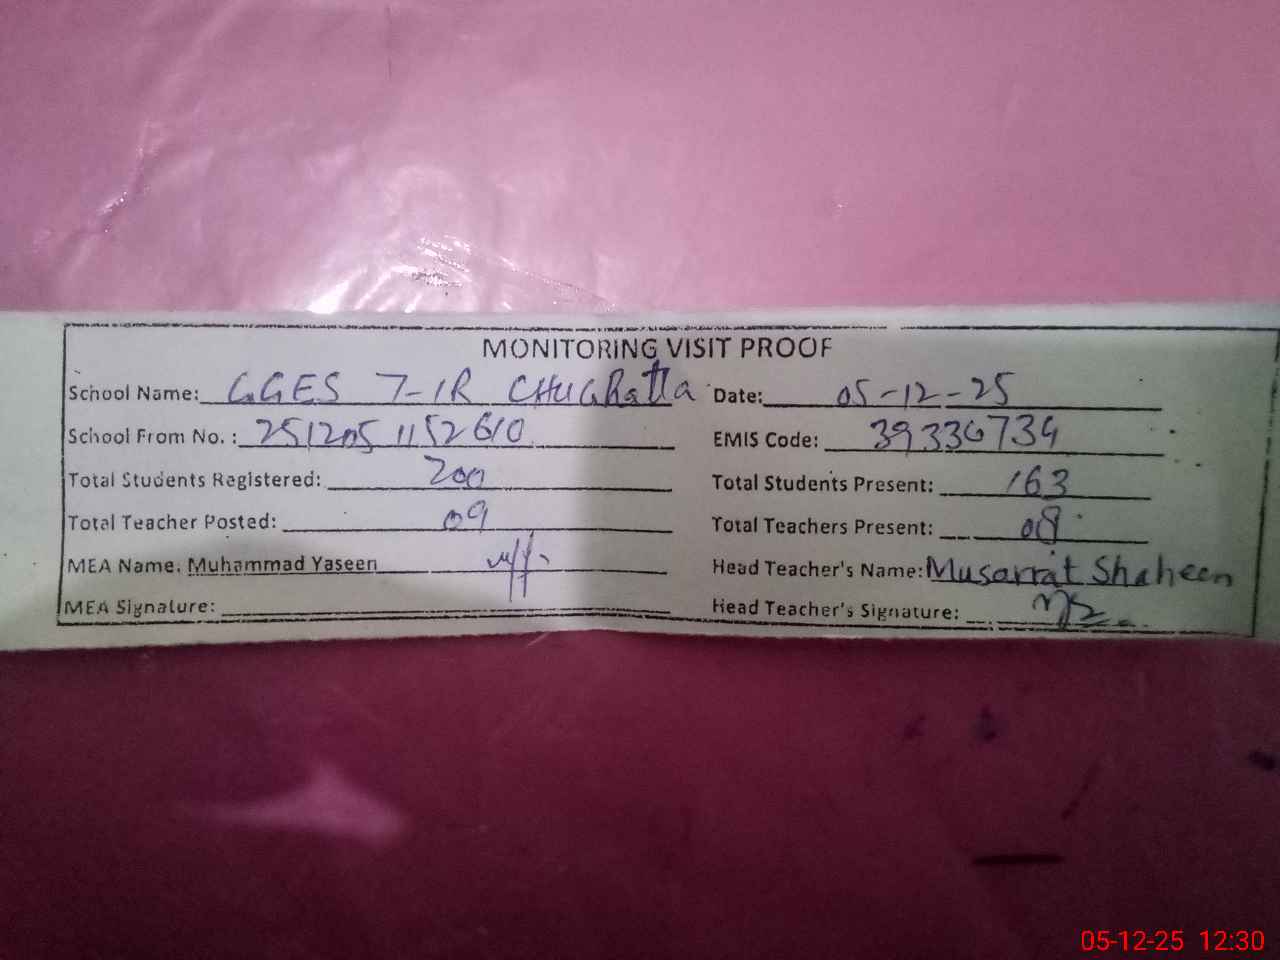 MONITORING VISIT PROOF
School Name: GGES 7-1R CHUGRatta Date: 05-12-25
School From No. : 2512051152610 EMIS Code: 39330734
Total Students Registered: 200 Total Students Present: 163
Total Teacher Posted: 09 Total Teachers Present: 08
MEA Name: Muhammad Yaseen Head Teacher's Name: Musarrat Shaheen
MEA Signature: Head Teacher's Signature:
05-12-25 12:30